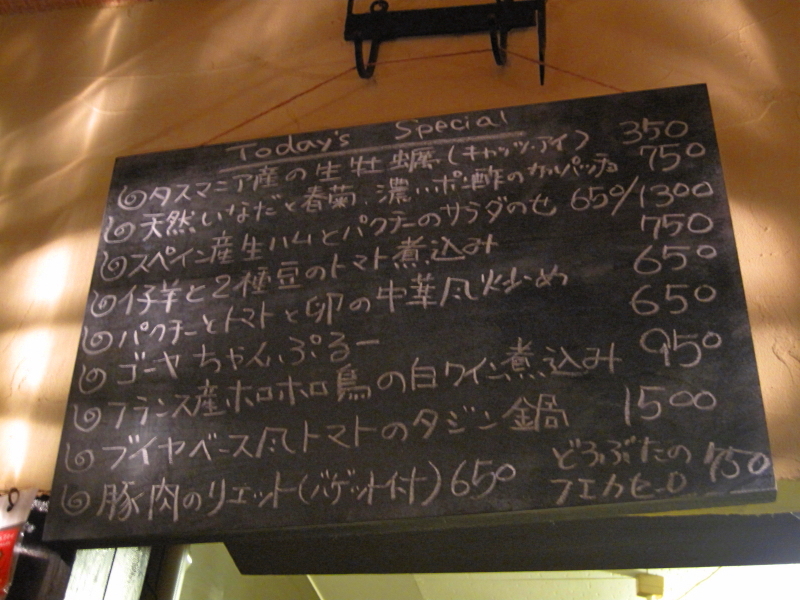 Today's Special
タスマニア産の生牡蠣(キャッツ・アイ) 350
天然いなだと春菊、濃いポン酢のカルパッチョ 750
スペイン産生ハムとパクチーのサラダのせ 650/1300
仔羊と2種豆のトマト煮込み 750
パクチーとトマトと卵の中華風炒め 650
ゴーヤちゃんぷるー 650
フランス産ホロホロ鳥の白ワイン煮込み 950
ブイヤベース風トマトのタジン鍋 1500
豚肉のリエット(バゲット付) 650
どろぶたの
フエカセロ 750